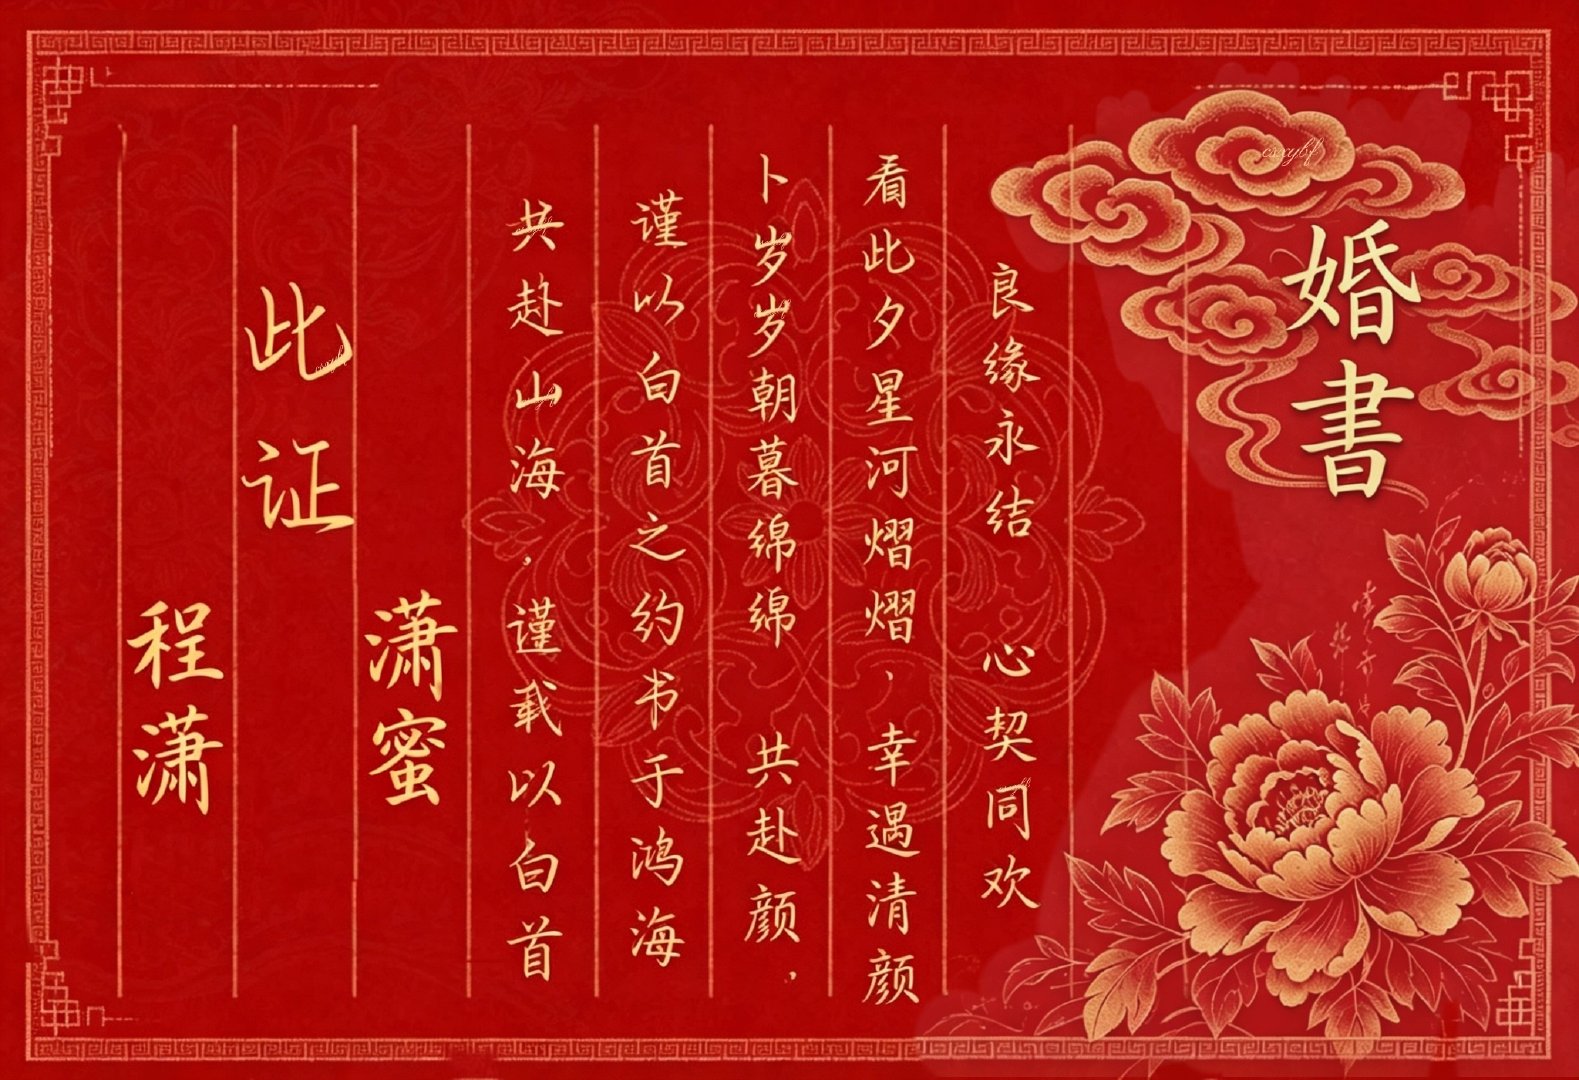 婚書
良缘永结 心契同欢
看此夕星河熠熠，幸遇清颜
卜岁岁朝暮绵绵 共赴颜，
谨以白首之约书于鸿海
共赴山海，谨载以白首
潇蜜
此证
程潇
csxybf